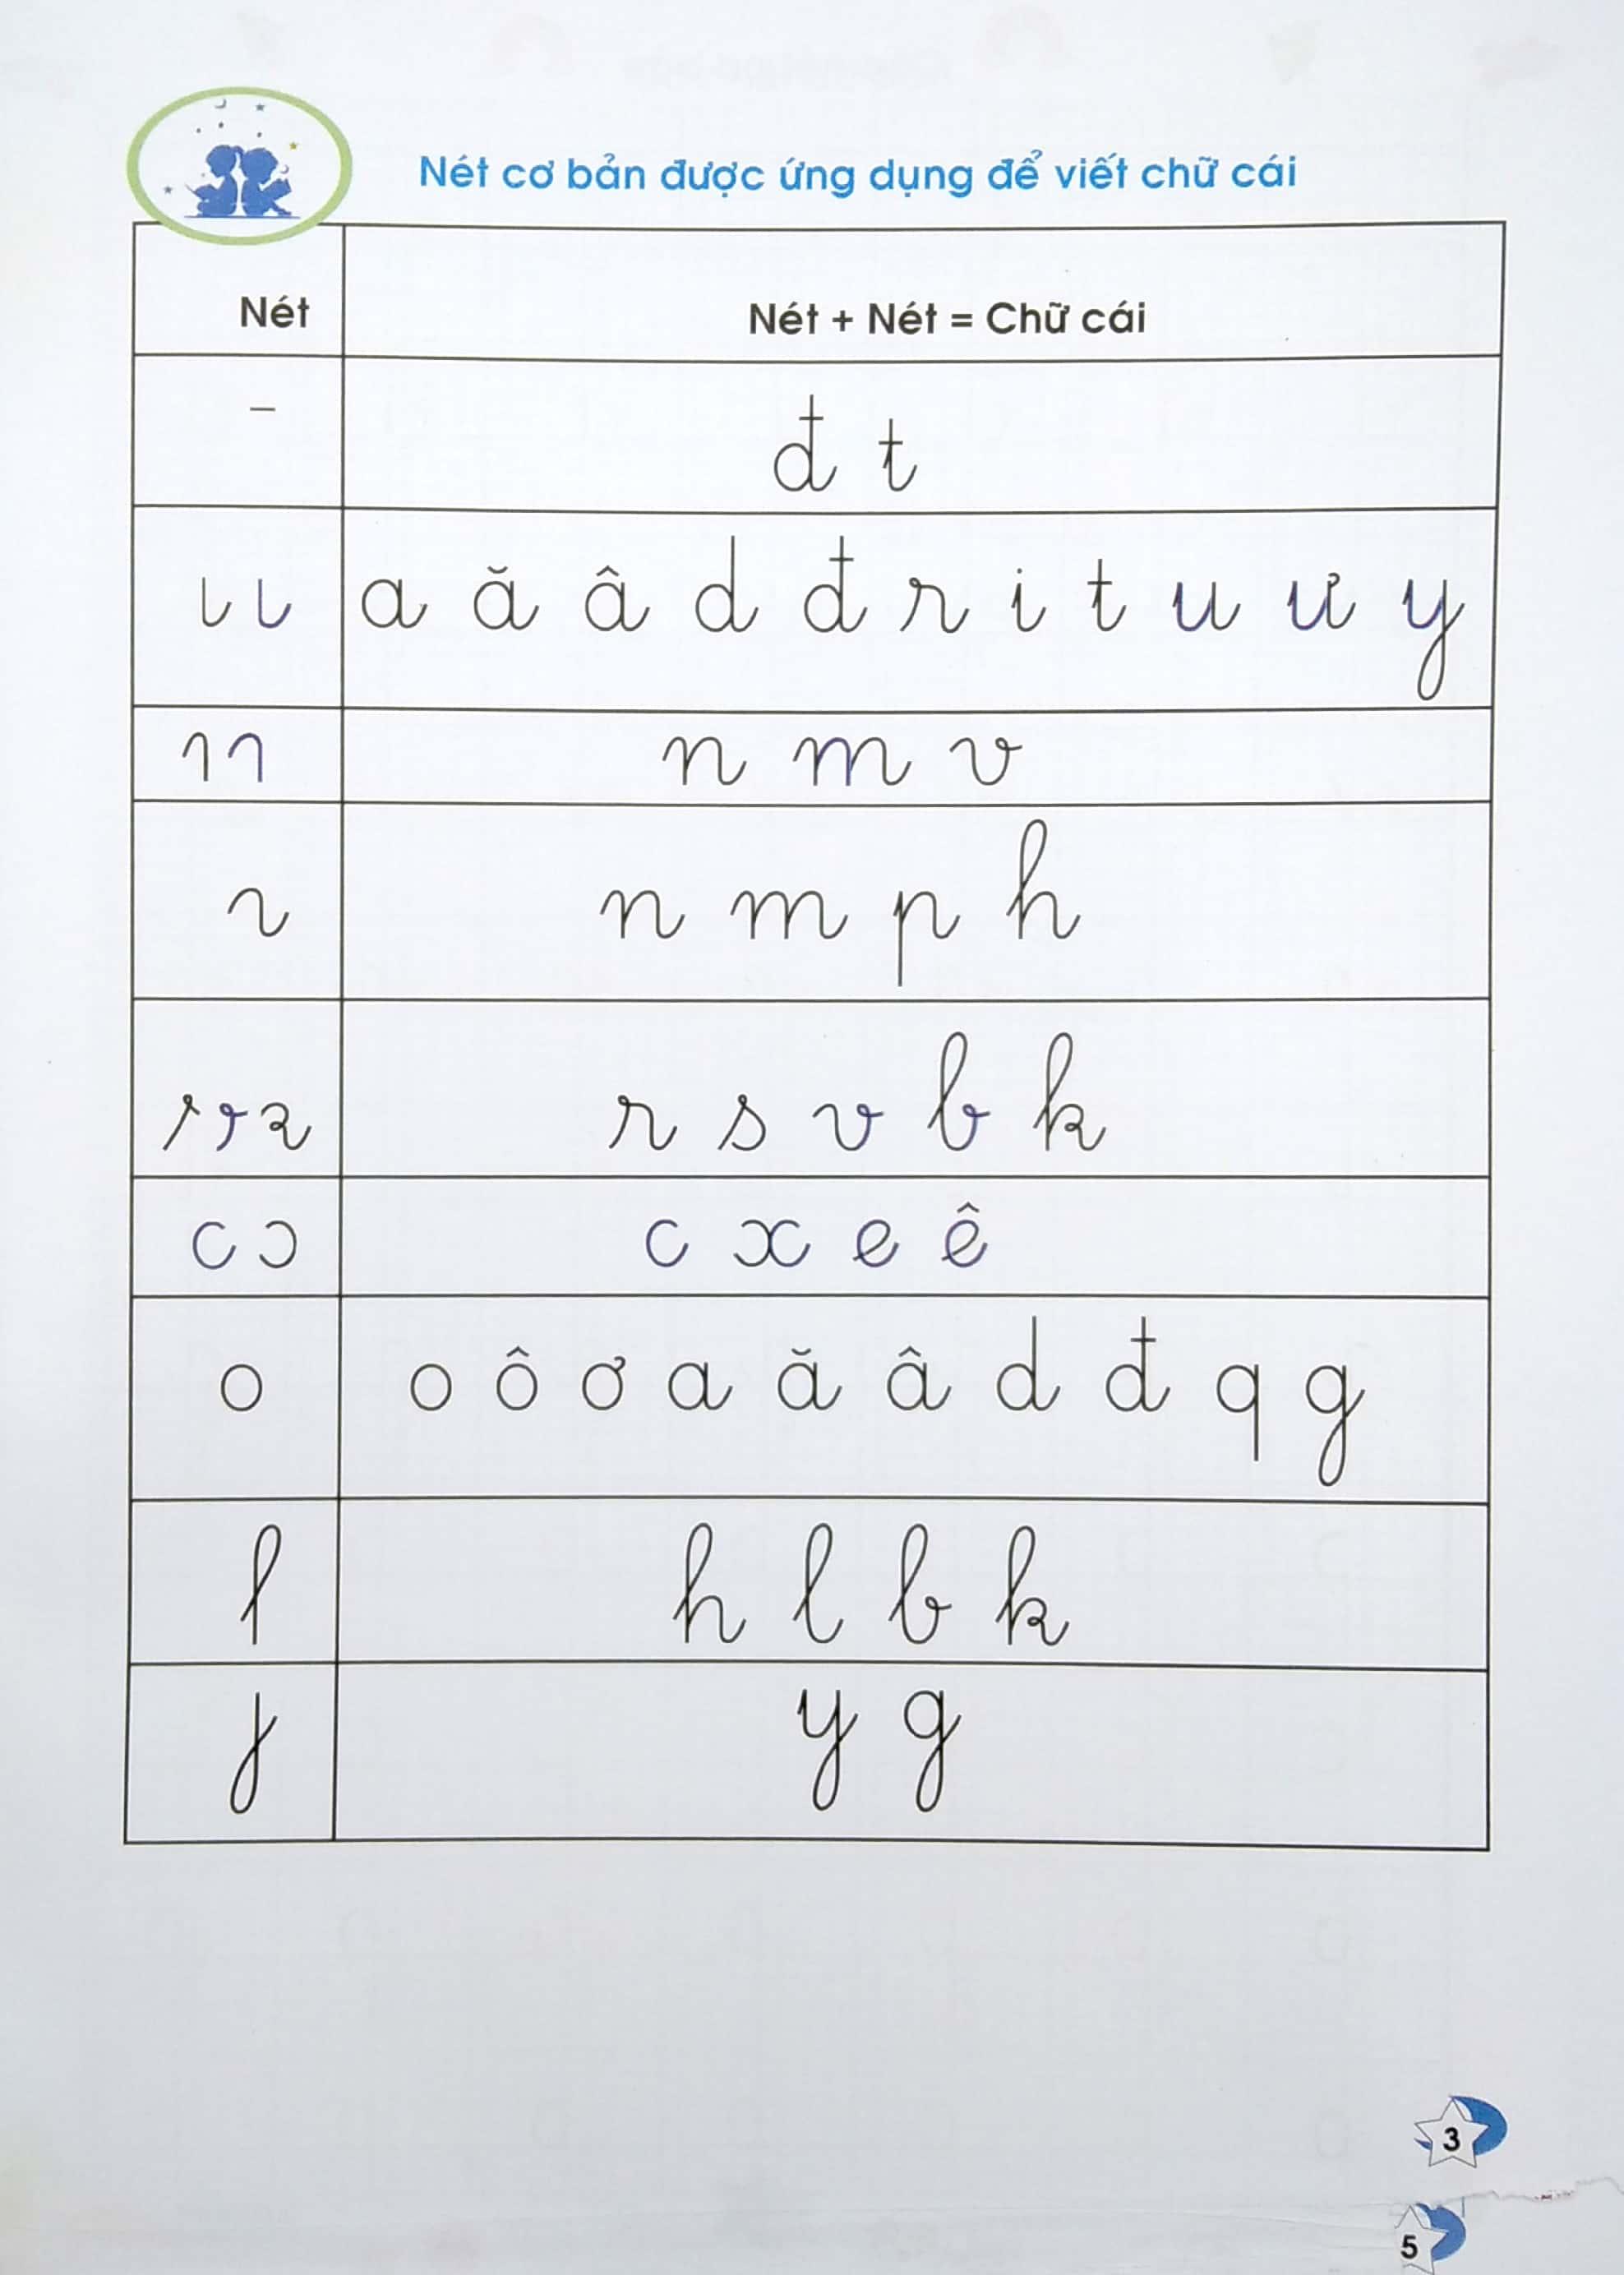 Nét cơ bản được ứng dụng để viết chữ cái
Nét Nét + Nét = Chữ cái
đ t
a ă â d đ r i t u ư y
n m v
n m p h
r s v b k
c c x e ê
o o ô ơ a ă â d đ q g
h l b k
y g
3
5